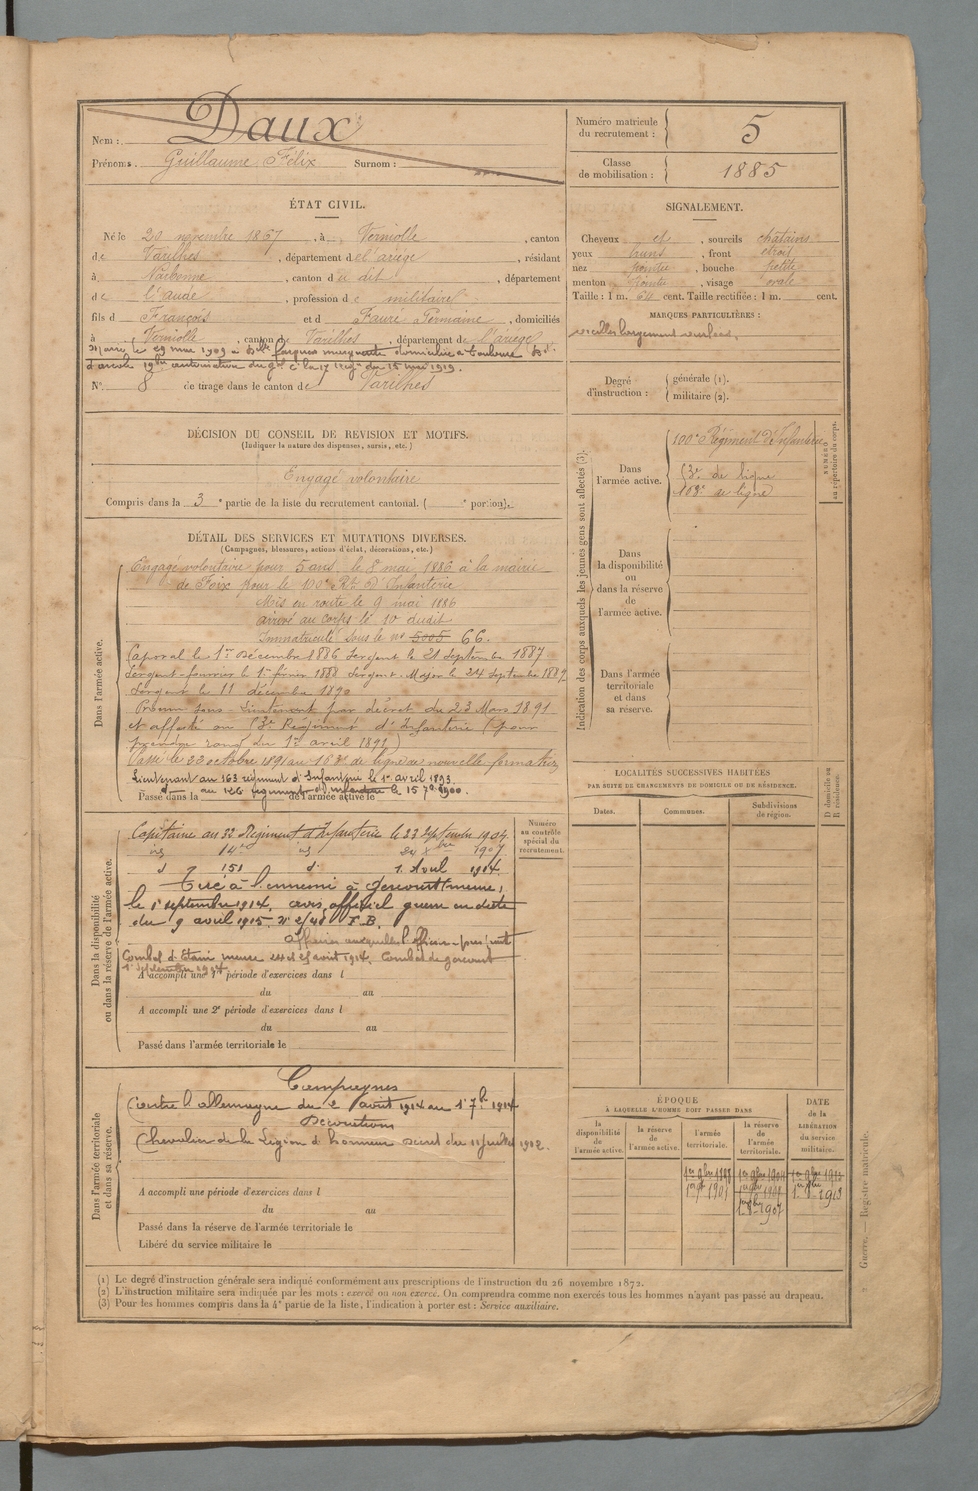 Nom : Daux
Prénoms : Guillaume Félix Surnom :
Numéro matricule du recrutement : 5
Classe de mobilisation : 1885
ÉTAT CIVIL.
Né le 20 novembre 1867, à Verniolle, canton
de Varilhes, département de l'ariège, résidant
à Narbonne, canton du dit, département
de l'aude, profession de militaire
fils de François et de Fauré Germaine, domiciliés
à Verniolle, canton de Varilhes, département de l'ariège
Marié le 29 mai 1909 à Delle fargues marguerite domiciliée à Toulouse Bd.
d'arcole autorisation du gal c la 17 du 15 mai 1919.
N° 8 de tirage dans le canton de Varilhes
SIGNALEMENT.
Cheveux et, sourcils chatains
yeux bruns, front étroit
nez pointu, bouche petite
menton pointu, visage ovale
Taille : 1 m. 64 cent. Taille rectifiée : 1 m. cent.
MARQUES PARTICULIÈRES :
oreilles largement ourlées.
Degré d'instruction : générale (1).
militaire (2).
DÉCISION DU CONSEIL DE REVISION ET MOTIFS.
(Indiquer la nature des dispenses, sursis, etc.)
Engagé volontaire
Compris dans la 3e partie de la liste du recrutement cantonal. ( e portion).
DÉTAIL DES SERVICES ET MUTATIONS DIVERSES.
(Campagnes, blessures, actions d'éclat, décorations, etc.)
Dans l'armée active.
Engagé volontaire pour 5 ans, le 8 mai 1886 à la mairie
de Foix pour le 100e Rt D'Infanterie
Mis en route le 9 mai 1886
arrivé au corps le 10 dudit
Immatriculé sous le no 5005 66.
Caporal le 1er Décembre 1886 Sergent le 21 Septembre 1887
Sergent-fourrier le 1er février 1888 Sergent-Major le 24 Septembre 1889
Sergent le 11 décembre 1890
Promu sous-Lieutenant par décret du 23 Mars 1891
et affecté au Régiment d'Infanterie (pour
prendre rang du 1er avril 1891)
Passé le 23 octobre 1891 au de ligne de nouvelle formation
Lieutenant au 163 régiment d'Infanterie le 1er avril 1893.
dt au 126 régiment d'infanterie le 15 7bre 1900.
Passé dans la de l'armée active le
Dans la disponibilité ou dans la réserve de l'armée active.
Capitaine au 32 Régiment d'Infanterie le 23 septembre 1904
14e 24 Xbre 1907
d 151 d 1 Avril 1914.
Tué à l'ennemi à gercourt (meuse)
le 1er septembre 1914, avis officiel guerre en date
du 9 avril 1915. F. B.
affaires auxquelles l'officier a pris part
Combat d'Etain meuse 24 et 25 août 1914. Combat de gercourt
1er septembre 1914.
A accompli une 1re période d'exercices dans l
du au
A accompli une 2e période d'exercices dans l
du au
Passé dans l'armée territoriale le
Numéro au contrôle spécial du recrutement.
Dans l'armée territoriale et dans sa réserve.
Campagnes
Contre l'allemagne du 2 août 1914 au 1er 7bre 1914
Décorations
Chevalier de la Légion d'honneur Décret du 11 juillet 1912.
A accompli une période d'exercices dans l
du au
Passé dans la réserve de l'armée territoriale le
Libéré du service militaire le
Indication des corps auxquels les jeunes gens sont affectés (3).
NUMÉRO au répertoire du corps.
Dans l'armée active.
100e Régiment d'Infanterie
de ligne
de ligne
Dans la disponibilité ou dans la réserve de l'armée active.
Dans l'armée territoriale et dans sa réserve.
LOCALITÉS SUCCESSIVES HABITÉES
PAR SUITE DE CHANGEMENTS DE DOMICILE OU DE RÉSIDENCE.
Dates. Communes. Subdivisions de région. D domicile ou R résidence.
ÉPOQUE
À LAQUELLE L'HOMME DOIT PASSER DANS
la disponibilité de l'armée active.
la réserve de l'armée active.
l'armée territoriale.
la réserve de l'armée territoriale.
DATE de la LIBÉRATION du service militaire.
(1) Le degré d'instruction générale sera indiqué conformément aux prescriptions de l'instruction du 26 novembre 1872.
(2) L'instruction militaire sera indiquée par les mots : exercé ou non exercé. On comprendra comme non exercés tous les hommes n'ayant pas passé au drapeau.
(3) Pour les hommes compris dans la 4e partie de la liste, l'indication à porter est : Service auxiliaire.
Guerre. — Registre matricule.